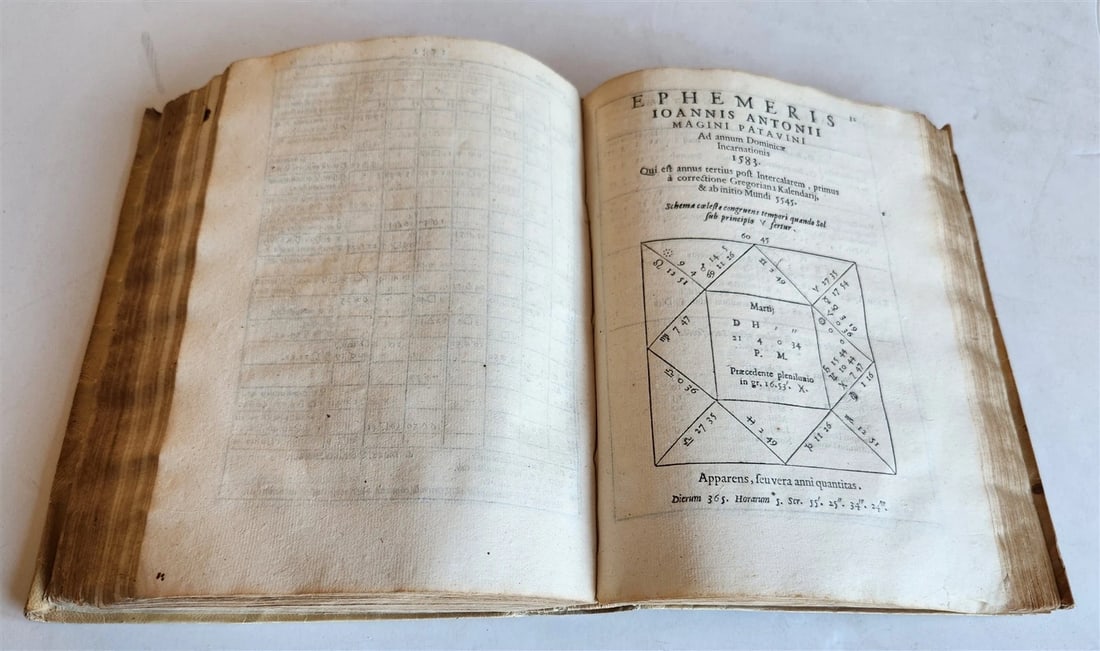 EPHEMERIS
IOANNIS ANTONII
MAGINI PATAVINI
Ad annum Dominicæ
Incarnationis
1583.
Qui est annus tertius post Intercalarem, primus
à correctione Gregoriana Kalendarij,
& ab initio Mundi 5545.
Schema cœleste congruens tempori quando Sol
sub principio ♈ fertur.
60 45
♌ 12 51
9 4
14 5
♋ 11 26
♊ 2 49
♈ 27 35
17 54
3 19
♈ 0 36
☉ 0 0
♍ 7 47
Martij
D H , ,,
21 4 0 34
P. M.
Præcedente plenilunio
in gr. 16.53'. ♓.
15 44
10 44
♓ 7 47
1 16
♎ 0 36
♎ 27 35
♐ 2 49
♑ 11 26
♒ 12 51
Apparens, seu vera anni quantitas.
Dierum 365. Horarum 5. Scr. 55'. 25''. 34'''. 24''''.